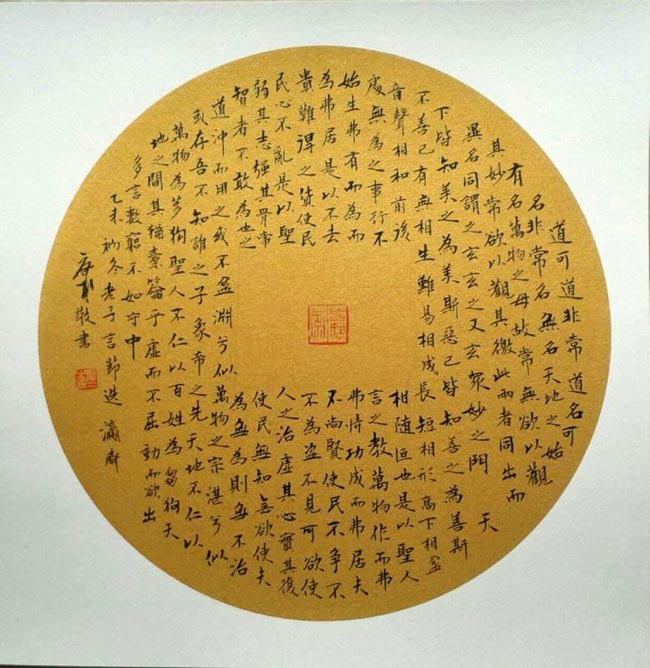 道可道非常道名可
名非常名無名天地之始
有名萬物之母故常無欲以觀
其妙常欲以觀其徼此兩者同出而
異名同謂之玄玄之又玄眾妙之門 天
下皆知美之為美斯惡已皆知善之為善斯
不善已有無相生難易相成長短相形高下相盈
音聲相和前後相随恒也是以聖人
處無為之事行不言之教萬物作而弗
始生弗有而為而弗恃功成而弗居夫
為弗居是以不去不尚賢使民不争不
貴難得之貨使民不為盗不見可欲使
民心不亂是以聖人之治虛其心實其復
弱其志強其骨常使民無知無欲使夫
智者不敢為也之為無為則無不治
道沖而用之或不盈淵兮似萬物之宗湛兮似
或存吾不知誰之子象帝之先天地不仁以
萬物為芻狗聖人不仁以百姓為芻狗天
地之間其猶橐籥乎虛而不屈動而欲出
多言數窮不如守中
乙未初冬老子言節選 瀟齋
敬書